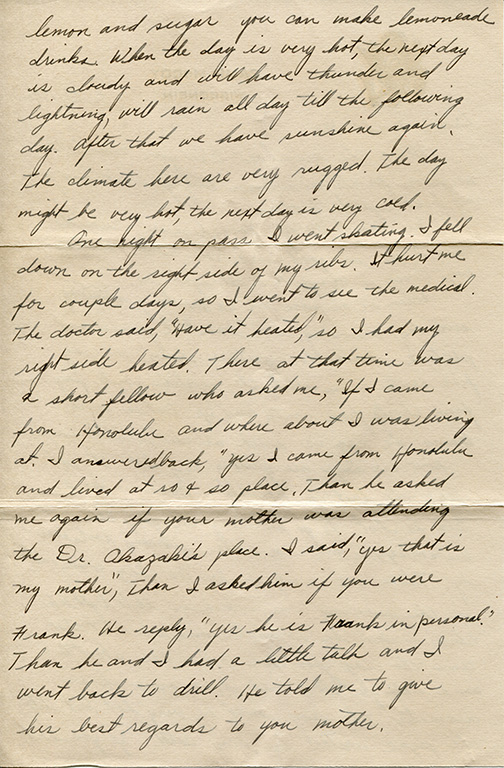 lemon and sugar you can make lemoneade
drinks. When the day is very hot, the next day
is cloudy and will have thunder and
lightning, will rain all day till the following
day. After that we have sunshine again.
The climate here are very rugged. The day
might be very hot, the next day is very cold.
One night on pass I went skating. I fell
down on the right side of my ribs. It hurt me
for couple days, so I went to see the medical.
The doctor said, "Have it heated," so I had my
right side heated. There at that time was
a short fellow who asked me, "If I came
from Honolulu and where about I was living
at. I answered back, "yes I came from Honolulu
and lived at so & so place. Than he asked
me again if your mother was attending
the Dr. Akazaki's place. I said, "yes that is
my mother", Than I asked him if you were
Frank. He reply, "yes he is Frank in personal."
Than he and I had a little talk and I
went back to drill. He told me to give
his best regards to you mother.